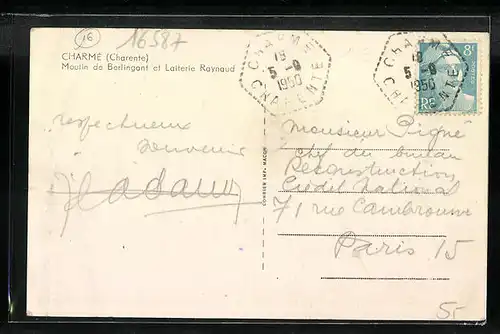 16
16587
CHARMÉ (Charente)
Moulin de Berlingant et Laiterie Raynaud
CHARME
19
5-9
1950
CHARENTE
CHARME
19
5-9
1950
CHARENTE
8F
RF
respectueux
souvenir
COMBIER IMP. MACON
Monsieur Pigné
chef du bureau
Reconstruction
Crédit National
71 rue Cambronne
Paris 15
5-